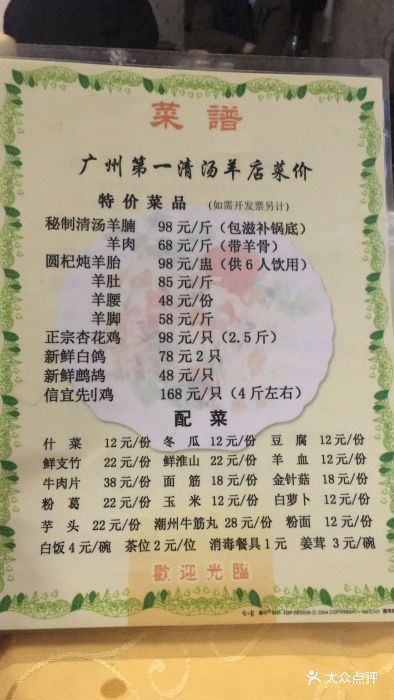 菜譜
广州第一清汤羊店菜价
特价菜品 (如需开发票另计)
秘制清汤羊腩 98元/斤(包滋补锅底)
羊肉 68元/斤(带羊骨)
圆杞炖羊胎 98元/盅(供6人饮用)
羊肚 85元/斤
羊腰 48元/份
羊脚 58元/斤
正宗杏花鸡 98元/只(2.5斤)
新鲜白鸽 78元2只
新鲜鹧鸪 48元/只
信宜先刂鸡 168元/只(4斤左右)
配菜
什菜 12元/份 冬瓜 12元/份 豆腐 12元/份
鲜支竹 22元/份 鲜淮山 22元/份 羊血 12元/份
牛肉片 38元/份 面筋 18元/份 金针菇 18元/份
粉葛 22元/份 玉米 12元/份 白萝卜 12元/份
芋头 22元/份 潮州牛筋丸 28元/份 粉面 12元/份
白饭4元/碗 茶位2元/位 消毒餐具1元 姜茸 3元/碗
歡迎光臨
TOP DESIGN © 2004 COPYRIGHT
大众点评